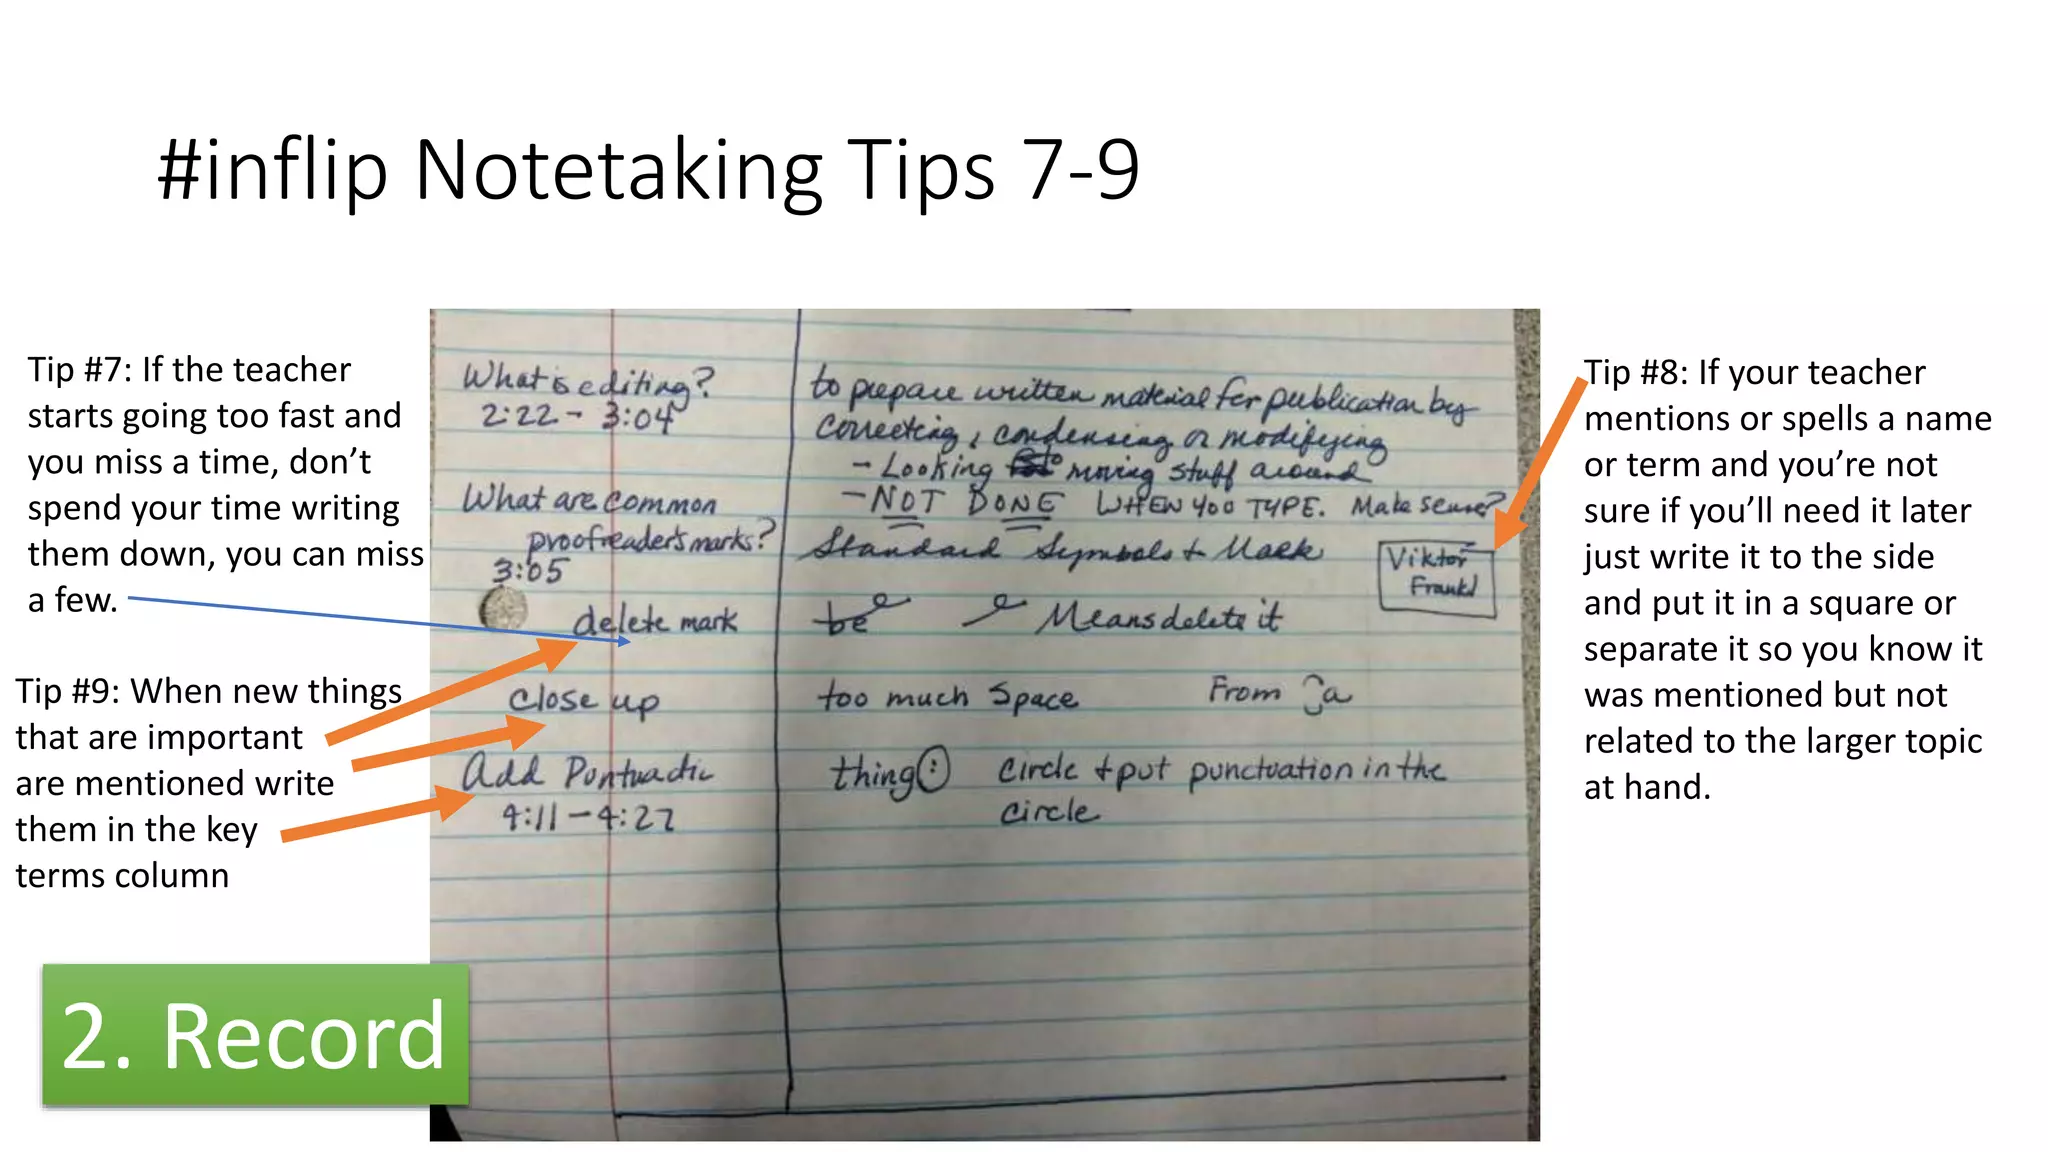 #inflip Notetaking Tips 7-9
Tip #7: If the teacher
starts going too fast and
you miss a time, don’t
spend your time writing
them down, you can miss
a few.
Tip #9: When new things
that are important
are mentioned write
them in the key
terms column
2. Record
What is editing?
2:22 - 3:04
What are common
proofreader's marks?
3:05
delete mark
close up
Add Puntuactic
4:11 - 4:27
to prepare written material for publication by
correcting, condensing or modifying
- Looking to moving stuff around
- NOT DONE WHEN YOU TYPE. Make sense?
Standard Symbols + Mark
Viktor
Frankl
be Means delete it
too much space From a
thing : circle + put punctuation in the
circle
Tip #8: If your teacher
mentions or spells a name
or term and you’re not
sure if you’ll need it later
just write it to the side
and put it in a square or
separate it so you know it
was mentioned but not
related to the larger topic
at hand.